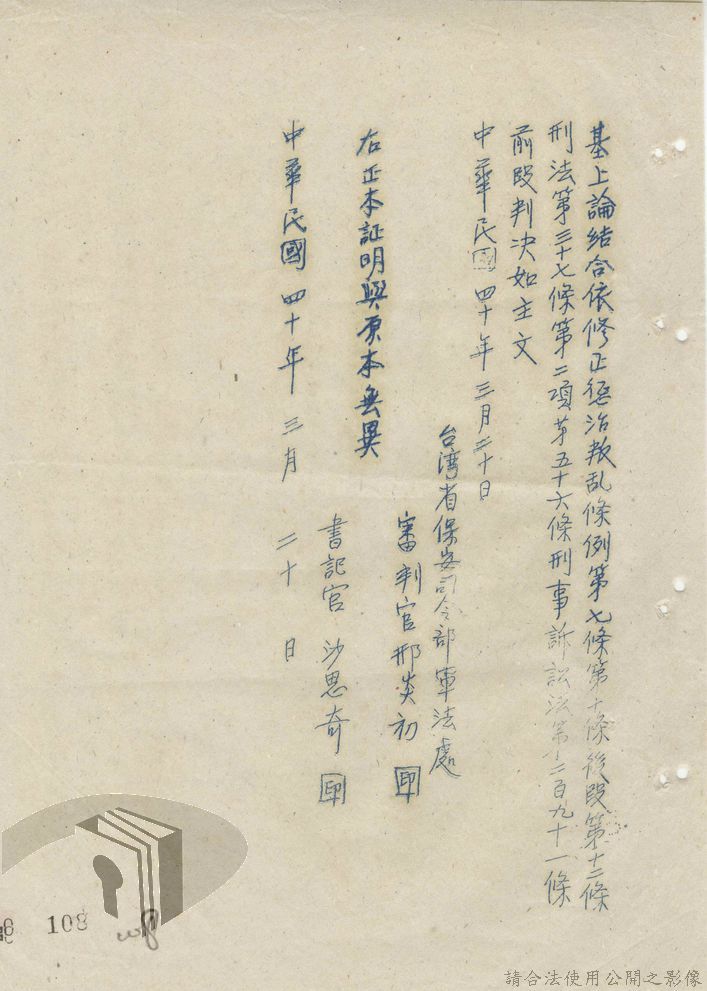 基上論結合依修正懲治叛乱條例第七條第十條後段第十二條
刑法第三十七條第二項第五十六條刑事訴訟法第二百九十一條
前段判决如主文
中華民國四十年三月二十日
台湾省保安司令部軍法處
審判官邢炎初 印
右正本証明與原本無異
書記官 沙思奇 印
中華民國四十年 三月 二十 日
108
請合法使用公開之影像